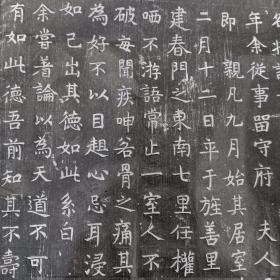 年余從事留守府 夫人
即 親凡九月始其居室
二月十二日卒于旌善里
建春門之東南七里任權
哂不游語常止一室人不
破每聞疾呻各骨之痛其
為好不以目趄心忌耳浸
如己出其德如此系曰
余嘗着論以為天道不可
有如此德吾前知其不壽